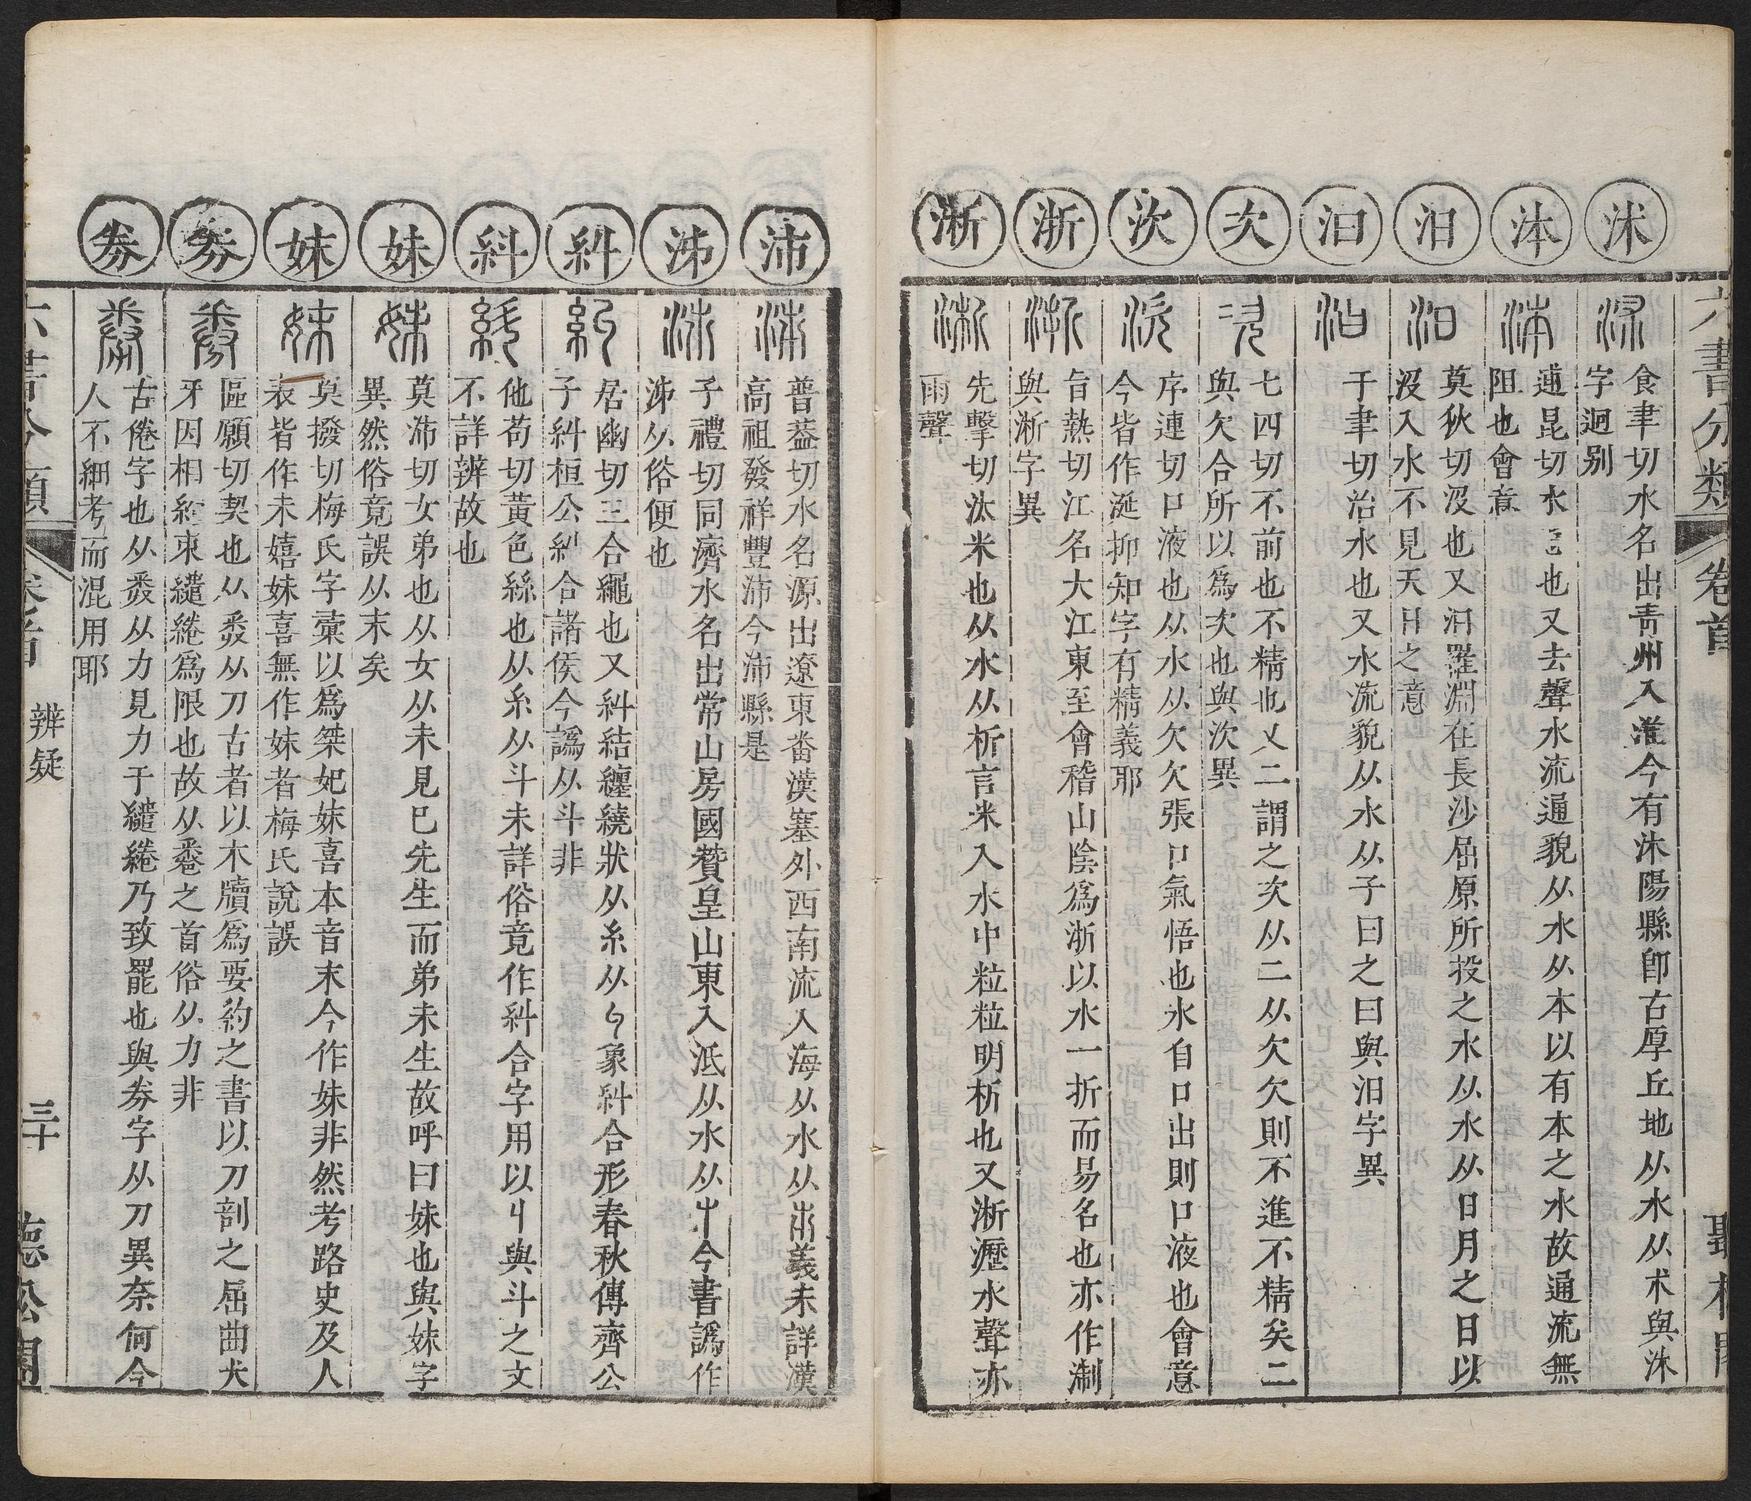 六書分類 卷首
沭
食聿切水名出青州入淮今有沭陽縣卽古厚丘地从水从术與沐
字迥别
泍
逋昆切水 也又去聲水流通貌从水从本以有本之水故通流無
阻也會意
汨
莫秋切沒也又汨羅淵在長沙屈原所投之水从水从日月之日以
沒入水不見天日之意
汩
于聿切治水也又水流貌从水从子曰之曰與汨字異
次
七四切不前也不精也乂二謂之次从二从欠欠則不進不精矣二
與欠合所以爲次也與㳄異
㳄
序連切口液也从水从欠欠張口氣悟也水自口出則口液也會意
今皆作涎抑知字有精義耶
浙
旨熱切江名大江東至會稽山陰爲浙以水一折而易名也亦作淛
與淅字異
淅
先擊切汰米也从水从析言米入水中粒粒明析也又淅瀝水聲亦
雨聲
沛
普葢切水名源出遼東畨漢塞外西南流入海从水从巿義未詳漢
高祖發祥豐沛今沛縣是
泲
子禮切同濟水名出常山房國贊皇山東入泜从水从 今書譌作
泲从俗便也
糾
居幽切三合繩也又糾結纏繞狀从糸从丩象糾合形春秋傳齊公
子糾桓公糾合諸侯今譌从斗非
紏
他苟切黃色絲也从糸从斗未詳俗竟作糾合字用以丩與斗之文
不詳辨故也
妹
莫沛切女弟也从女从未見巳先生而弟未生故呼曰妹也與妺字
異然俗竟誤从末矣
妺
莫撥切梅氏字彙以爲桀妃妺喜本音末今作妹非然考路史及人
表皆作未嬉妹喜無作妺者梅氏說誤
券
區願切契也从 从刀古者以木牘爲要約之書以刀剖之屈曲犬
牙因相約束繾綣爲限也故从 之首俗从力非
劵
古倦字也从 从力見力于繾綣乃致罷也與券字从刀異奈何今
人不細考而混用耶
六書分類 卷首 辨疑 三十 聽松閣